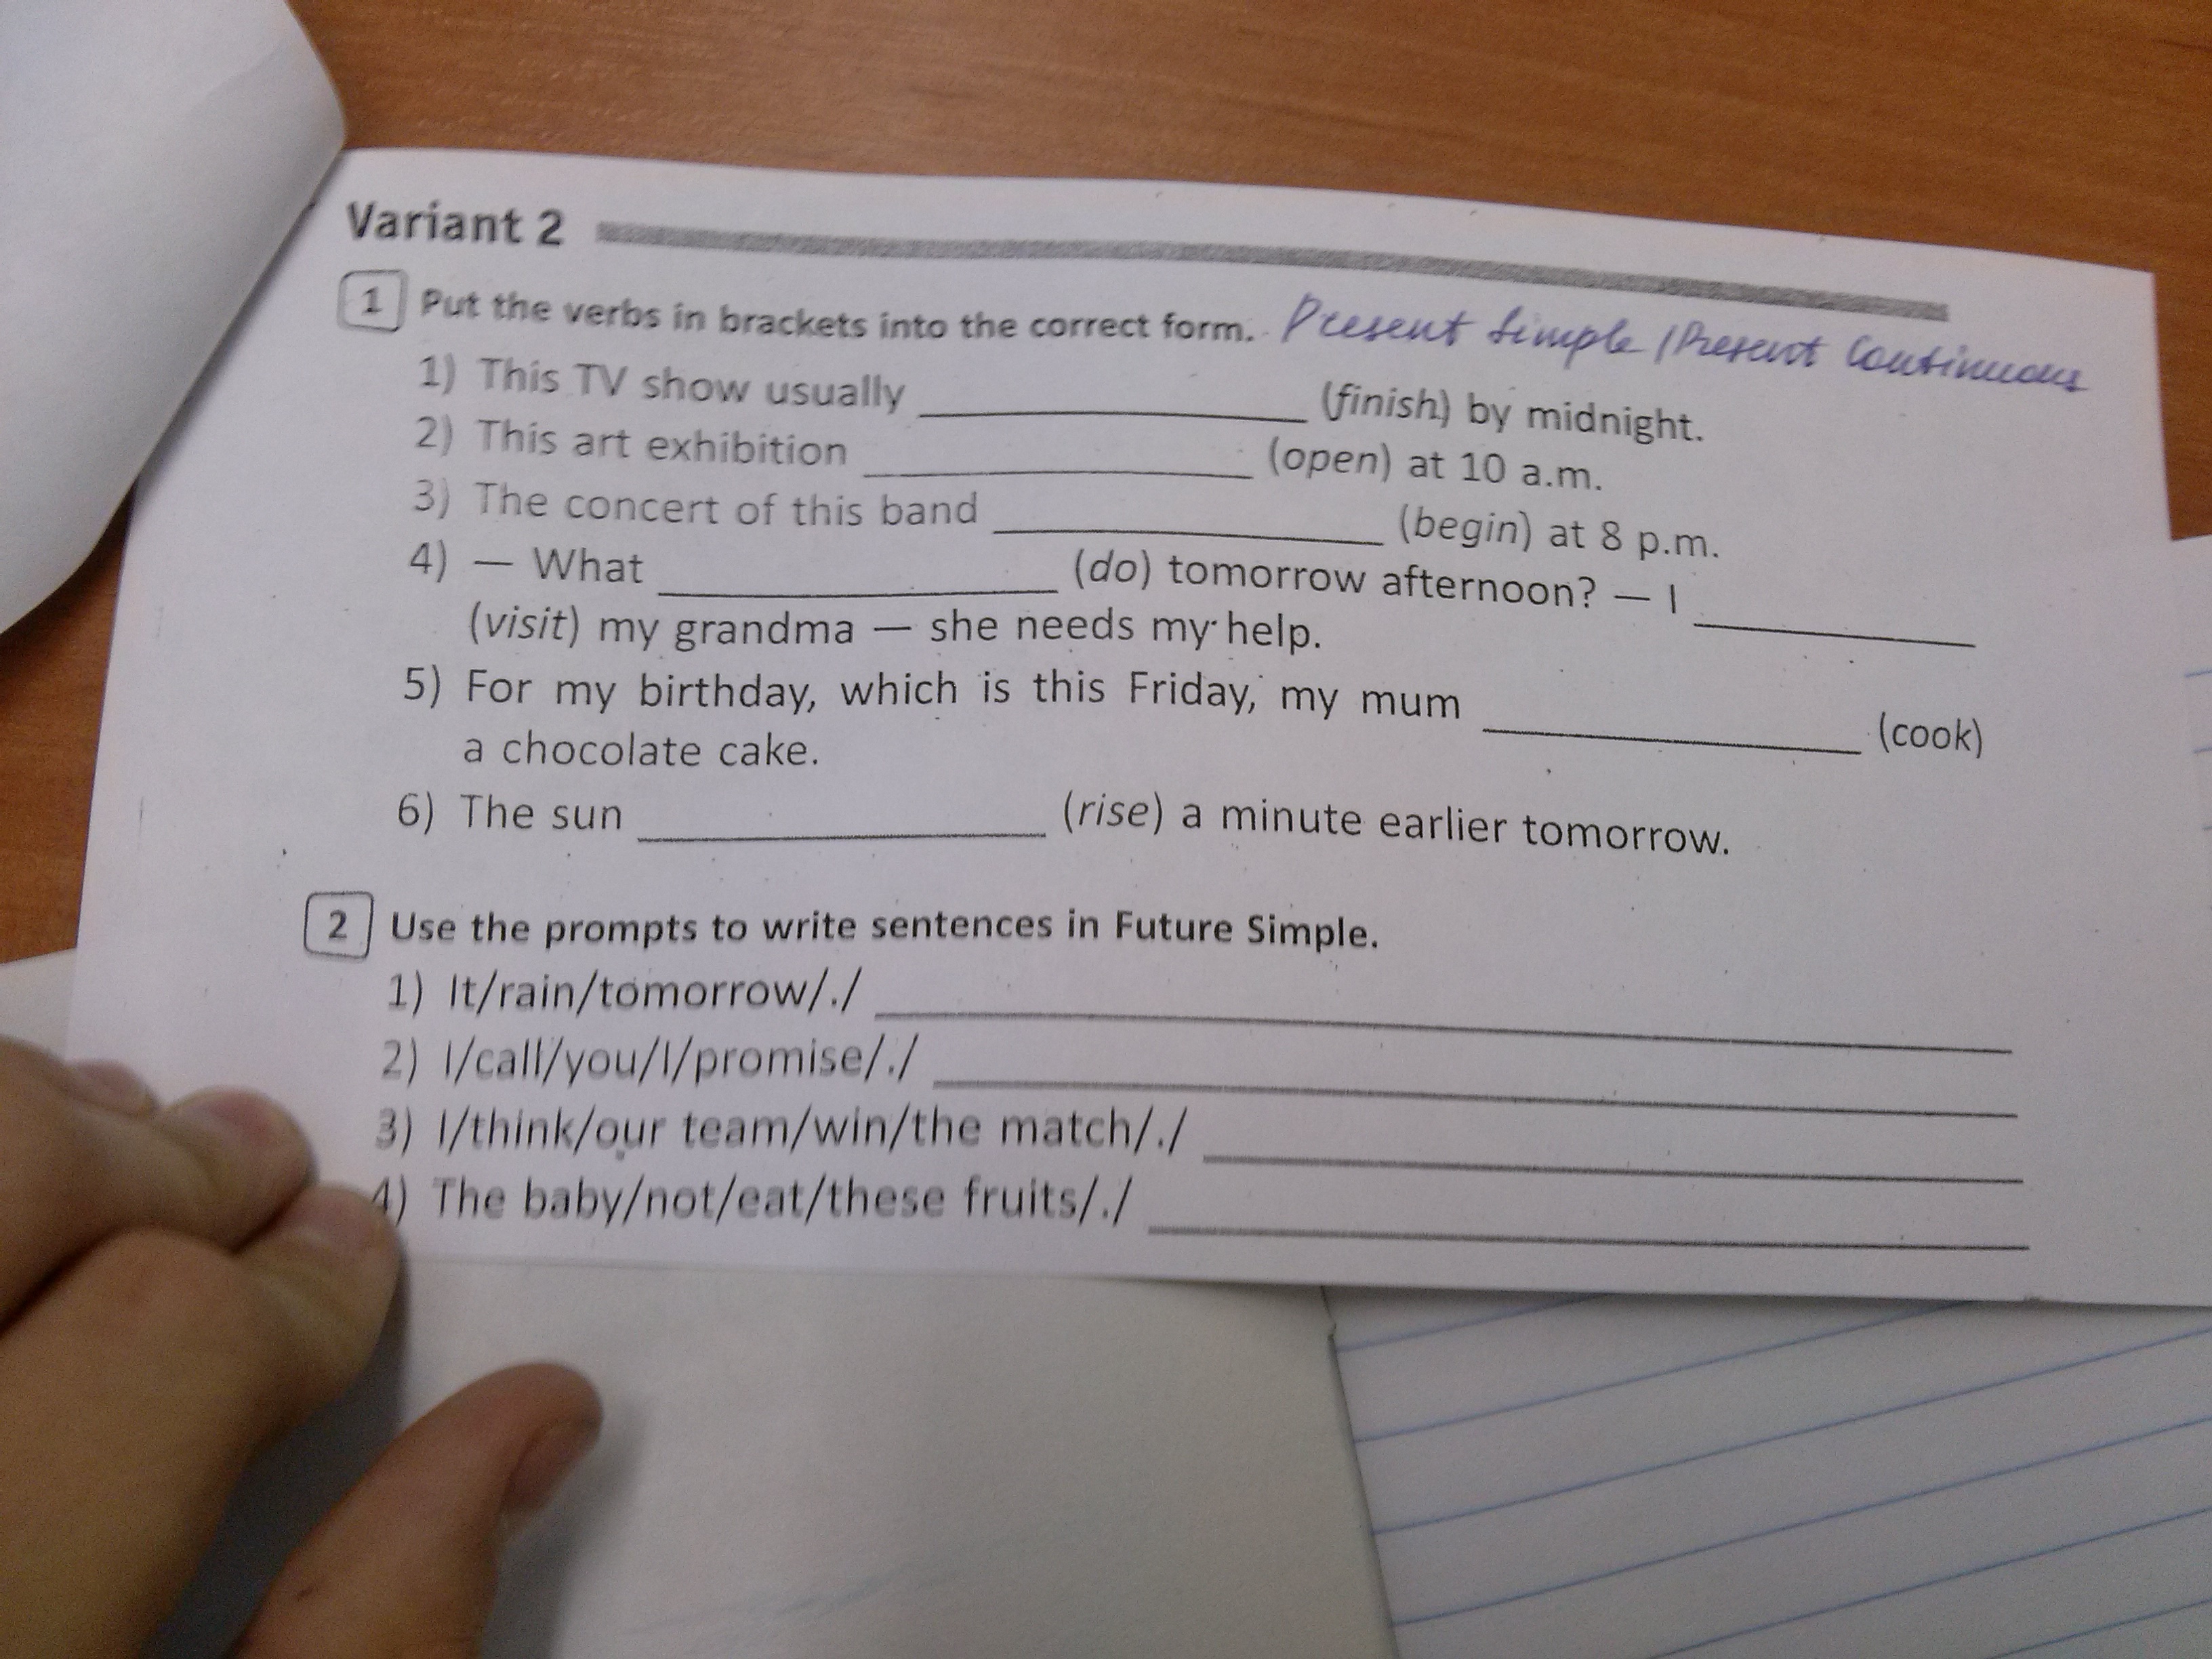 Variant 2
1 Put the verbs in brackets into the correct form. Present Simple / Present Continuous
1) This TV show usually ____________ (finish) by midnight.
2) This art exhibition ____________ (open) at 10 a.m.
3) The concert of this band ____________ (begin) at 8 p.m.
4) — What ____________ (do) tomorrow afternoon? — I ____________
(visit) my grandma — she needs my help.
5) For my birthday, which is this Friday, my mum ____________ (cook)
a chocolate cake.
6) The sun ____________ (rise) a minute earlier tomorrow.
2 Use the prompts to write sentences in Future Simple.
1) It/rain/tomorrow/./ ____________
2) I/call/you/I/promise/./ ____________
3) I/think/our team/win/the match/./ ____________
4) The baby/not/eat/these fruits/./ ____________